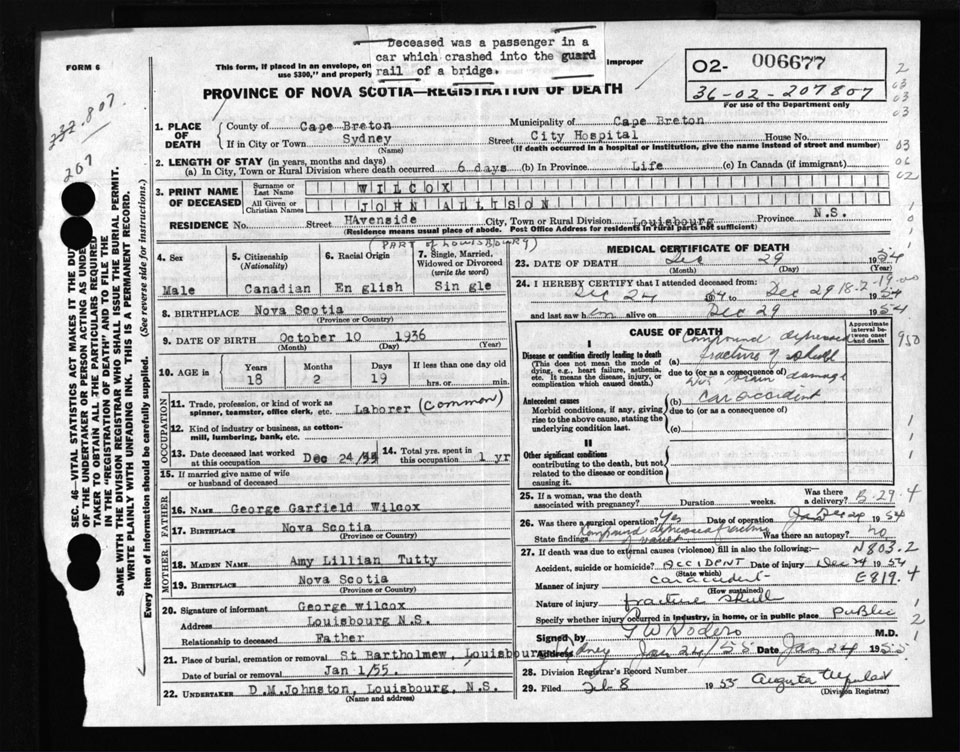 Deceased was a passenger in a
car which crashed into the guard
rail of a bridge.
FORM 6
This form, if placed in an envelope, on
improper
use $300," and properly
O2- 006677
36-02-207807
For use of the Department only
PROVINCE OF NOVA SCOTIA—REGISTRATION OF DEATH
232.807
207
SEC. 46—VITAL STATISTICS ACT MAKES IT THE DUT
OF THE UNDERTAKER OR PERSON ACTING AS UNDE
TAKER TO OBTAIN ALL THE PARTICULARS REQUIRED
IN THE "REGISTRATION OF DEATH" AND TO FILE THE
SAME WITH THE DIVISION REGISTRAR WHO SHALL ISSUE THE BURIAL PERMIT.
WRITE PLAINLY WITH UNFADING INK. THIS IS A PERMANENT RECORD.
Every item of information should be carefully supplied. (See reverse side for instructions.)
1. PLACE OF DEATH
County of Cape Breton Municipality of Cape Breton
If in City or Town Sydney Street City Hospital House No.
(Name) (If death occurred in a hospital or institution, give the name instead of street and number)
2. LENGTH OF STAY (in years, months and days)
(a) In City, Town or Rural Division where death occurred 6 days (b) In Province Life (c) In Canada (if immigrant)
3. PRINT NAME OF DECEASED
Surname or Last Name WILCOX
All Given or Christian Names JOHN ALLISON
RESIDENCE No. Street HAvenside City, Town or Rural Division Louisbourg Province N.S.
(Residence means usual place of abode. Post Office Address for residents in rural parts not sufficient)
(PART of LOUISBOURG)
4. Sex
Male
5. Citizenship
(Nationality)
Canadian
6. Racial Origin
En glish
7. Single, Married, Widowed or Divorced
(write the word)
Sin gle
8. BIRTHPLACE Nova Scotia
(Province or Country)
9. DATE OF BIRTH October 10 1936
(Month) (Day) (Year)
10. AGE in
Years Months Days If less than one day old
18 2 19 hrs. or min.
OCCUPATION
11. Trade, profession, or kind of work as
spinner, teamster, office clerk, etc. Laborer (Common)
12. Kind of industry or business, as cotton-
mill, lumbering, bank, etc.
13. Date deceased last worked
at this occupation Dec 24/55
14. Total yrs. spent in
this occupation 1 yr
15. If married give name of wife
or husband of deceased
FATHER
16. NAME George Garfield Wilcox
17. BIRTHPLACE Nova Scotia
(Province or Country)
MOTHER
18. MAIDEN NAME Amy Lillian Tutty
19. BIRTHPLACE Nova Scotia
(Province or Country)
20. Signature of informant George wilcox
Address Louisbourg N.S.
Relationship to deceased Father
21. Place of burial, cremation or removal St Bartholmew, Louisbourg
Date of burial or removal Jan 1/55.
22. UNDERTAKER D.M.Johnston, Louisbourg, N.S.
(Name and address)
MEDICAL CERTIFICATE OF DEATH
23. DATE OF DEATH Dec 29 1954
(Month) (Day) (Year)
24. I HEREBY CERTIFY that I attended deceased from:
Dec 24 1954 to Dec 29 1954
18-2-19-00
and last saw him alive on Dec 29 1954
CAUSE OF DEATH
Approximate interval between onset and death
950
I
Disease or condition directly leading to death
(This does not mean the mode of
dying, e.g., heart failure, asthenia,
etc. It means the disease, injury, or
complication which caused death.)
(a) Compound depressed
fracture of skull
due to (or as a consequence of)
with brain damage
Antecedent causes
Morbid conditions, if any, giving
rise to the above cause, stating the
underlying condition last.
(b) car accident
due to (or as a consequence of)
(c)
II
Other significant conditions
contributing to the death, but not
related to the disease or condition
causing it.
25. If a woman, was the death
associated with pregnancy? Duration weeks. Was there a delivery? B-29.4
26. Was there a surgical operation? Yes Date of operation Dec 24 1954
State findings Compound depressed fracture
of vault Was there an autopsy? no
27. If death was due to external causes (violence) fill in also the following:— N803.2
Accident, suicide or homicide? ACCIDENT Date of injury Dec 24 1954
(State which)
Manner of injury car accident E819.4
(How sustained)
Nature of injury fracture skull
Specify whether injury occurred in industry, in home, or in public place PUBLIC
Signed by M.D.
Address Sydney Jan 24/55 Date Jan 24 1955
28. Division Registrar's Record Number
29. Filed Feb 8 1955 Augusta
(Division Registrar)